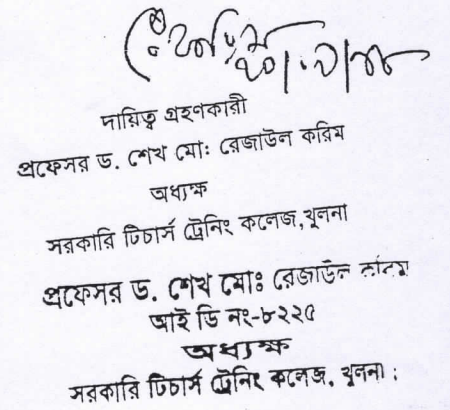 দায়িত্ব গ্রহণকারী
প্রফেসর ড. শেখ মোঃ রেজাউল করিম
অধ্যক্ষ
সরকারি টিচার্স ট্রেনিং কলেজ,খুলনা
প্রফেসর ড. শেখ মোঃ রেজাউল করিম
আই ডি নং-৮২২৫
অধ্যক্ষ
সরকারি টিচার্স ট্রেনিং কলেজ, খুলনা ;